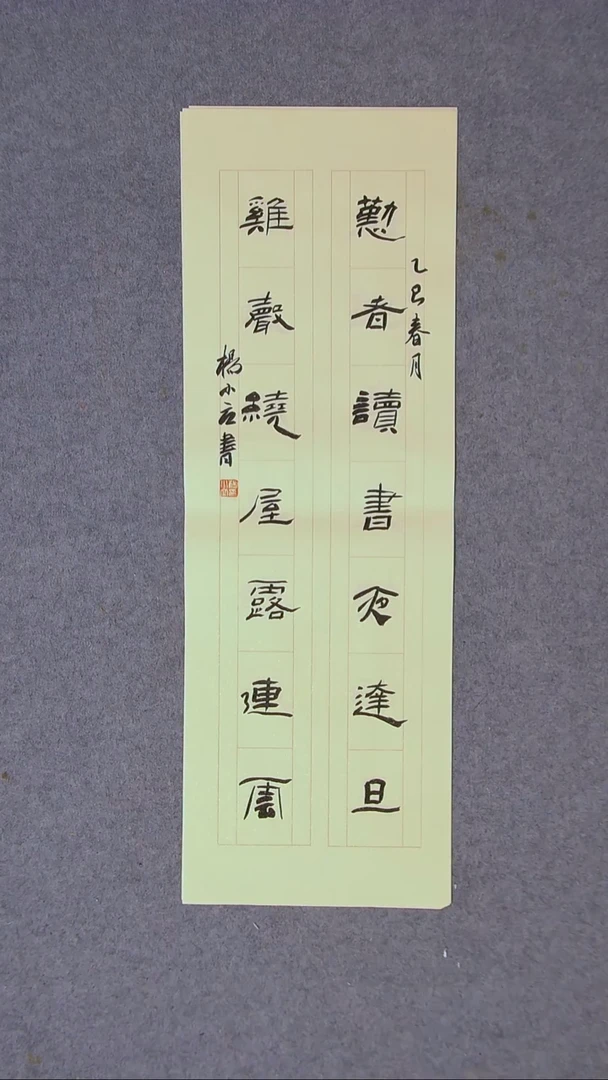 乙巳春月
懃者讀書夜達旦
雞聲繞屋露連雲
楊小書